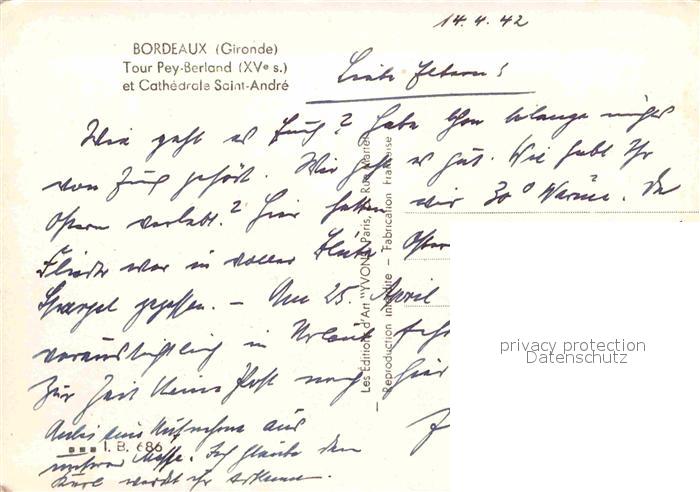 14.4.42
BORDEAUX (Gironde)
Tour Pey-Berland (XVe s.)
et Cathédrale Saint-André
Liebe Eltern!
Wie geht es Euch? Habe schon solange nichts
von Euch gehört. Mir geht es gut. Wie habt Ihr
Ostern verlebt? Hier hatten wir 30° Wärme. Der
Flieder war in voller Blüte. Ostern
Spargel gegessen. – Am 25. April
voraussichtlich in Urlaub
Zur Zeit keine Post nach hier
Anbei eine Aufnahme aus
unserer Messe. Ich glaube den
Karl werdet ihr erkennen.
I. B. 686
Les Éditions d'Art "YVON", Paris, Rue
Reproduction Interdite – Fabrication Française
privacy protection
Datenschutz